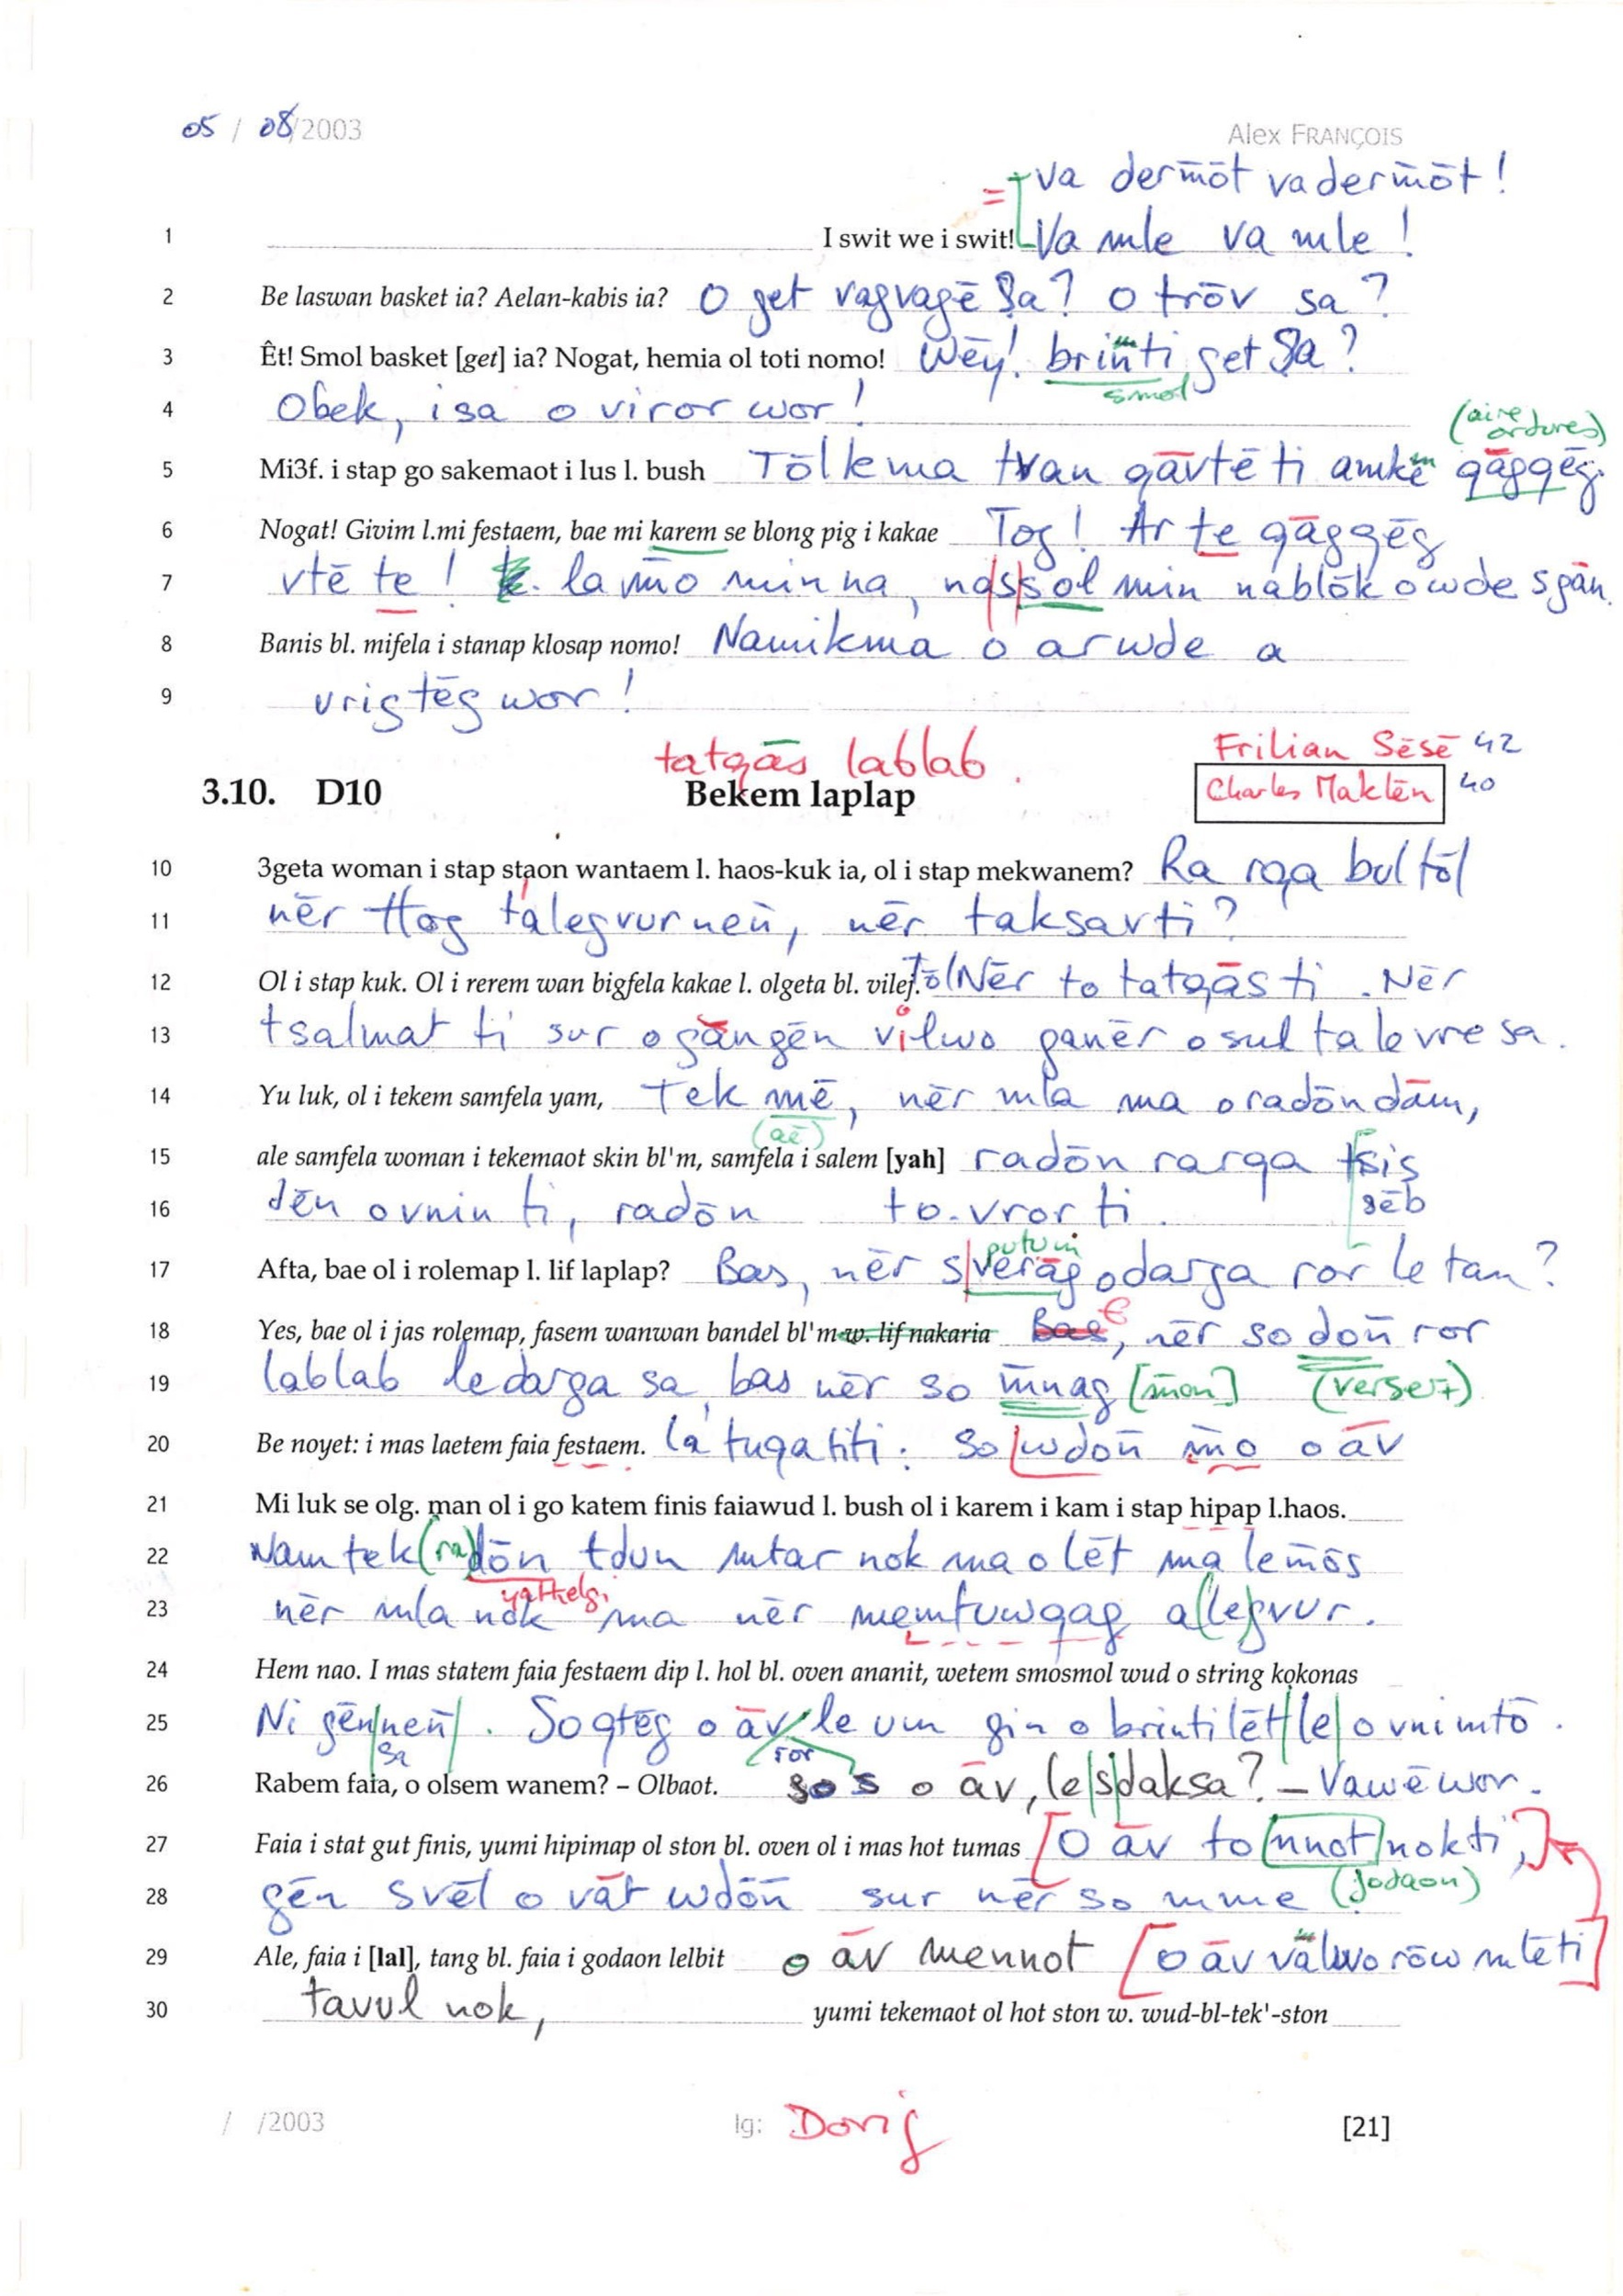 05 / 08/2003 Alex FRANÇOIS
= va dermōt va dermōt!
1 I swit we i swit! Va mle va mle!
2 Be laswan basket ia? Aelan-kabis ia? O get vagvagē sa? O trōv sa?
3 Êt! Smol basket [get] ia? Nogat, hemia ol toti nomo! Wēy! brinti get sa?
smol
4 Obek, i sa o viror wor!
(aire ordures)
5 Mi3f. i stap go sakemaot i lus l. bush Tōlkma tvan qāvtē ti amkēn qāgqēg.
6 Nogat! Givim l.mi festaem, bae mi karem se blong pig i kakae Tog! Ar te qāgqēg
7 vtē te! la m̄o min na, na s sol min na blōk o wde sgān.
8 Banis bl. mifela i stanap klosap nomo! Namikma o ar wde a
9 vrigtēg wor!
tatqās lablab.
Frilian Sēsē 42
3.10. D10 Bekem laplap Charles Maklēn 40
10 3geta woman i stap staon wantaem l. haos-kuk ia, ol i stap mekwanem? Ra rqa bul tōl
11 nēr tog talegvur nen̄, nēr taksav ti?
12 Ol i stap kuk. Ol i rerem wan bigfela kakae l. olgeta bl. vilej. Tōl Nēr to tatqās ti. Nēr
13 tsalmat ti sur o gāngēn vilwo ganēr o sul ta levre sa.
14 Yu luk, ol i tekem samfela yam, Tek mē, nēr mla ma o radōn dām,
(aē)
15 ale samfela woman i tekemaot skin bl'm, samfela i salem [yah] radōn rarqa tsis
16 dēn o vnin ti, radōn to vror ti. sēb
putum
17 Afta, bae ol i rolemap l. lif laplap? Bas, nēr s verāg o darga ror le tan?
18 Yes, bae ol i jas rolemap, fasem wanwan bandel bl'm w. lif nakaria Bas €, nēr so don̄ ror
19 lablab le darga sa, bas nēr so m̄nag [m̄on] (verser)
20 Be noyet: i mas laetem faia festaem. la tuqa titi: so wdon̄ m̄o o āv
21 Mi luk se olg. man ol i go katem finis faiawud l. bush ol i karem i kam i stap hipap l.haos.
22 Nam tek (ra)dōn tdun mtar nok ma o lēt ma lem̄ōs
yatkelgi
23 nēr mla nok ma nēr memtuwgag a(le)gvur.
24 Hem nao. I mas statem faia festaem dip l. hol bl. oven ananit, wetem smosmol wud o string kokonas
25 Ni gēn nen̄. So qtēg o āv le um gin o brinti lēt le o vnimtō.
sa ror
26 Rabem faia, o olsem wanem? – Olbaot. so s o āv, le s daksa? – Vawē wor.
27 Faia i stat gut finis, yumi hipimap ol ston bl. oven ol i mas hot tumas [O āv to nnot nok ti,]
28 gēn svēl o vāt wdōn̄ sur nēr so mme (godaon)
29 Ale, faia i [lal], tang bl. faia i godaon lelbit o āv mennot [o āv vālwo rōw mtē ti]
30 tavul nok, yumi tekemaot ol hot ston w. wud-bl-tek'-ston
/ /2003 lg: Dorig [21]